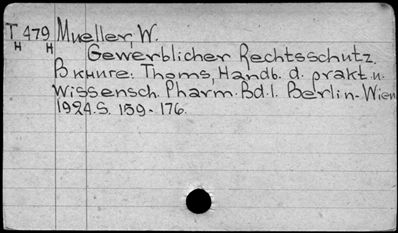 T 479 Mueller, W.
H H Gewerblicher Rechtsschutz.
В книге: Thoms, Handb. d. prakt. u.
wissensch. Pharm. Bd. I. Berlin-Wien
1924. S. 159-176.